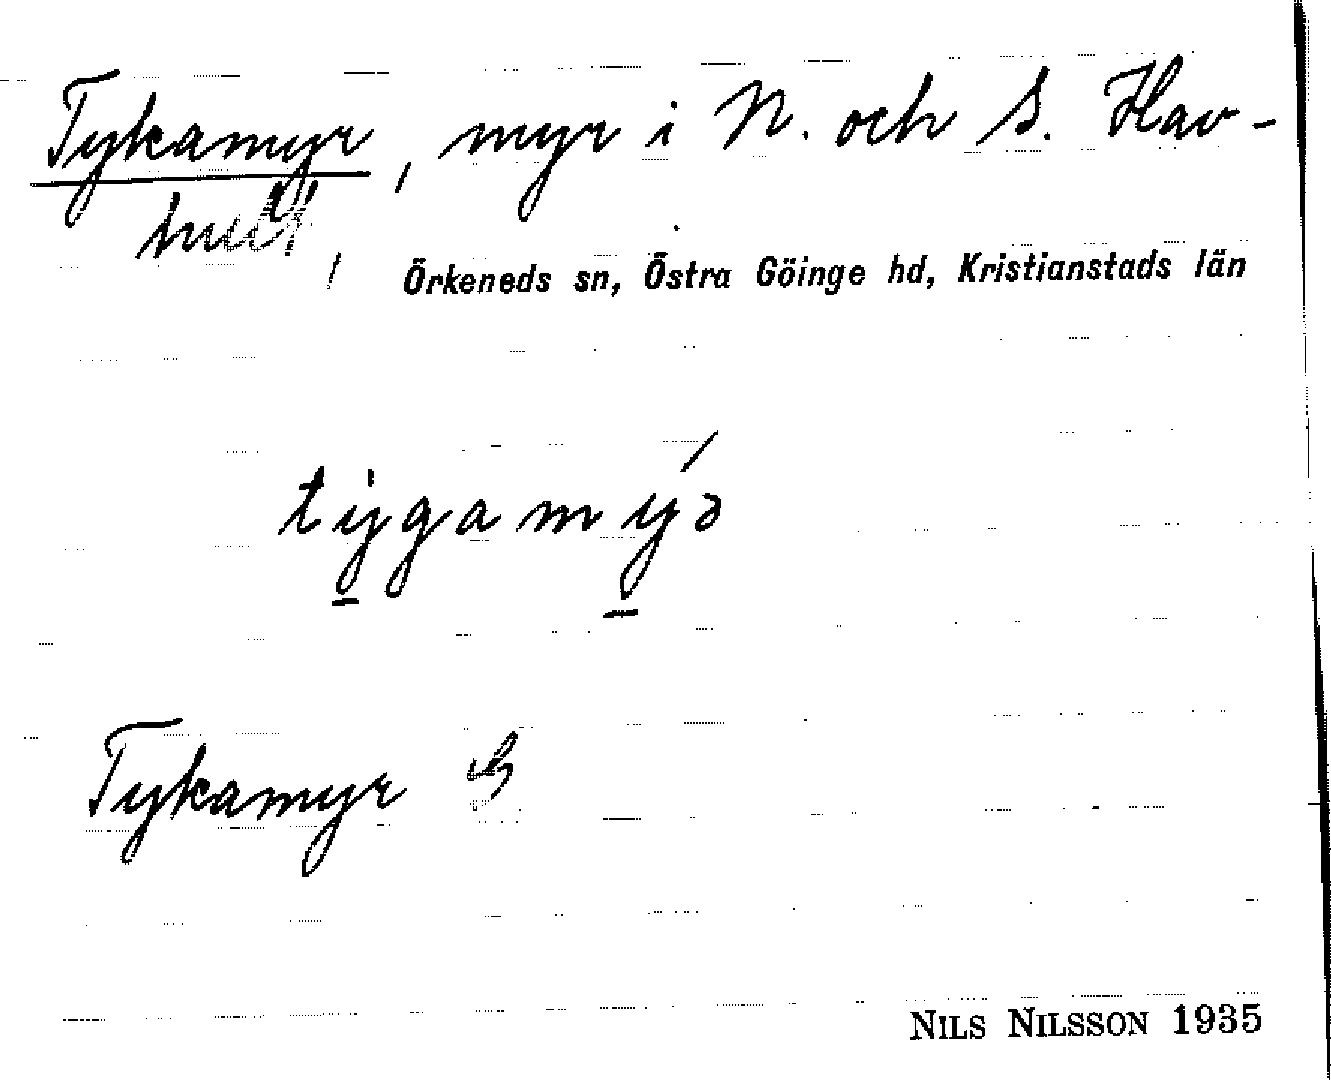 Tykamyr, myr i N. och S. Hav-
hult,
Örkeneds sn, Östra Göinge hd, Kristianstads län
tẏgamýə
Tykamyr G
NILS NILSSON 1935